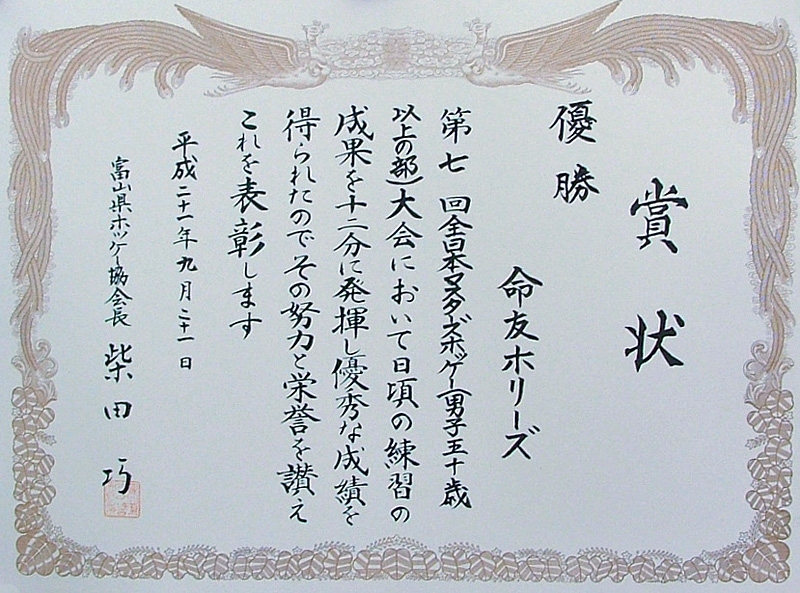 賞状
優勝
命友ホリーズ
第七回全日本マスターズホッケー(男子五十歳
以上の部)大会において日頃の練習の
成果を十二分に発揮し優秀な成績を
得られたのでその努力と栄誉を讃え
これを表彰します
平成二十一年九月二十一日
富山県ホッケー協会長 柴田 巧